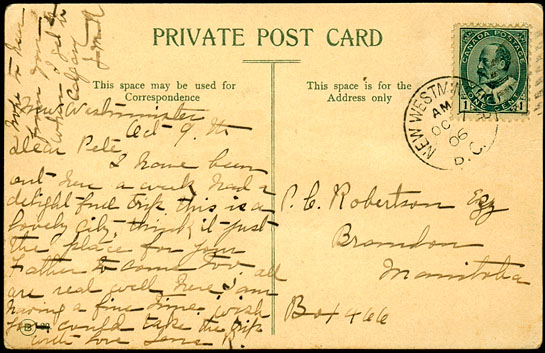 PRIVATE POST CARD
This space may be used for
Correspondence
This space is for the
Address only
CANADA POSTAGE
1 ONE CENT 1
NEW WESTMINSTER
AM
OC
06
B.C.
New Westminster
Oct 9th
Dear Pete
I have been
out here a week had a
delightful trip this is a
lovely city, think it just
the place for you
Father to come too. all
are real well here, I am
having a fine time. wish
you could take the trip
with love
P. C. Robertson Esq
Brandon
Manitoba
Box 466
hope to hear
from you
when I get to
Calgary